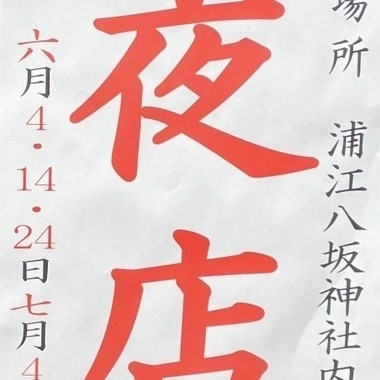 場所 浦江八坂神社内
夜店
六月4・14・24日七月4